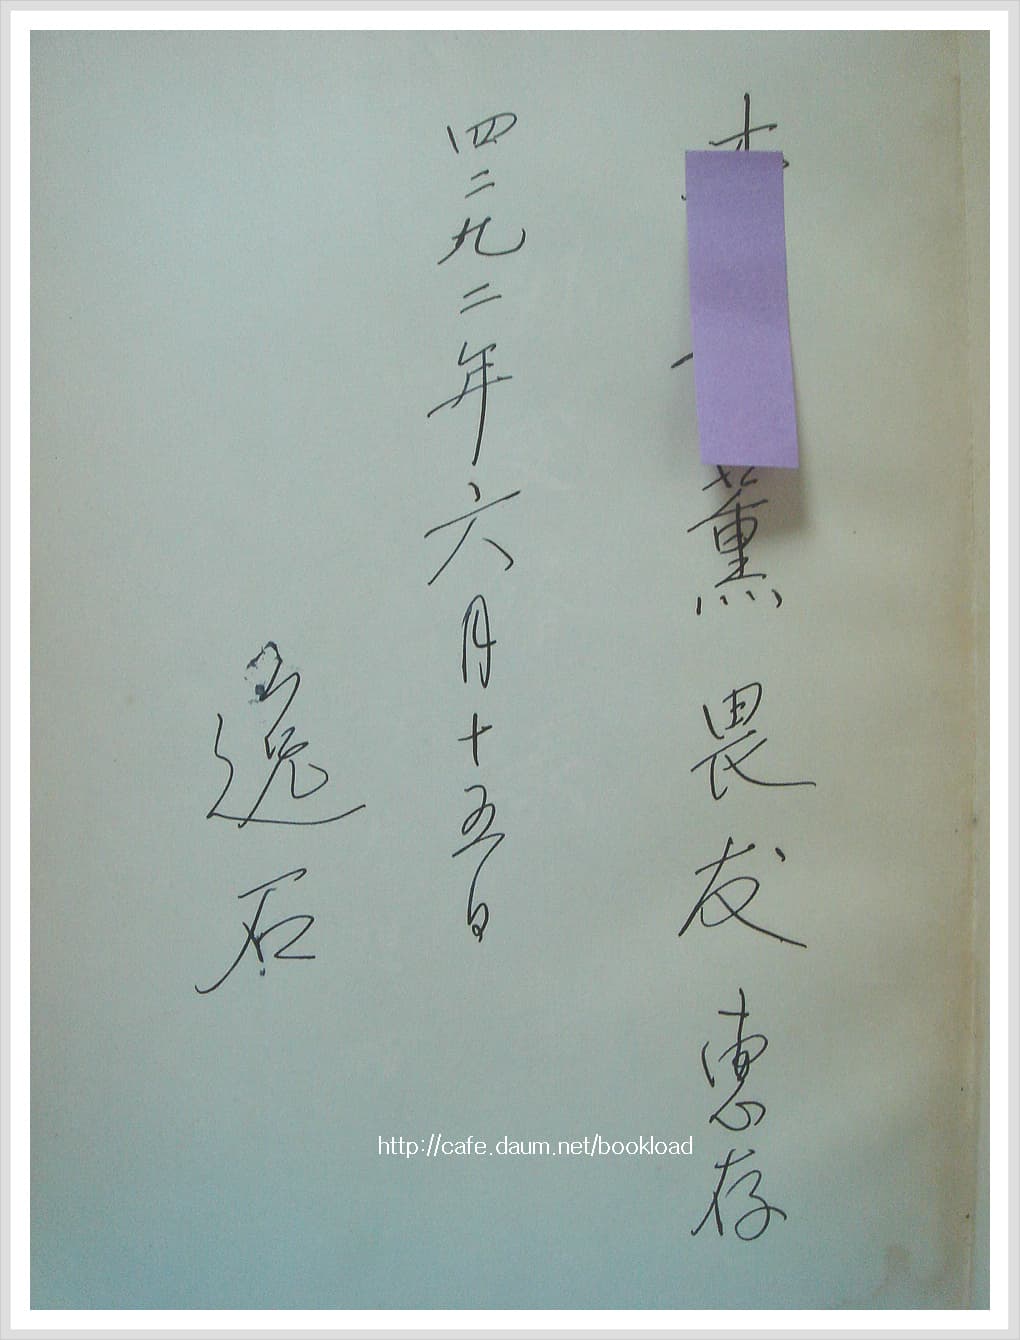 薰 畏友 惠存
四二九二年六月十五日
逸石
http://cafe.daum.net/bookload